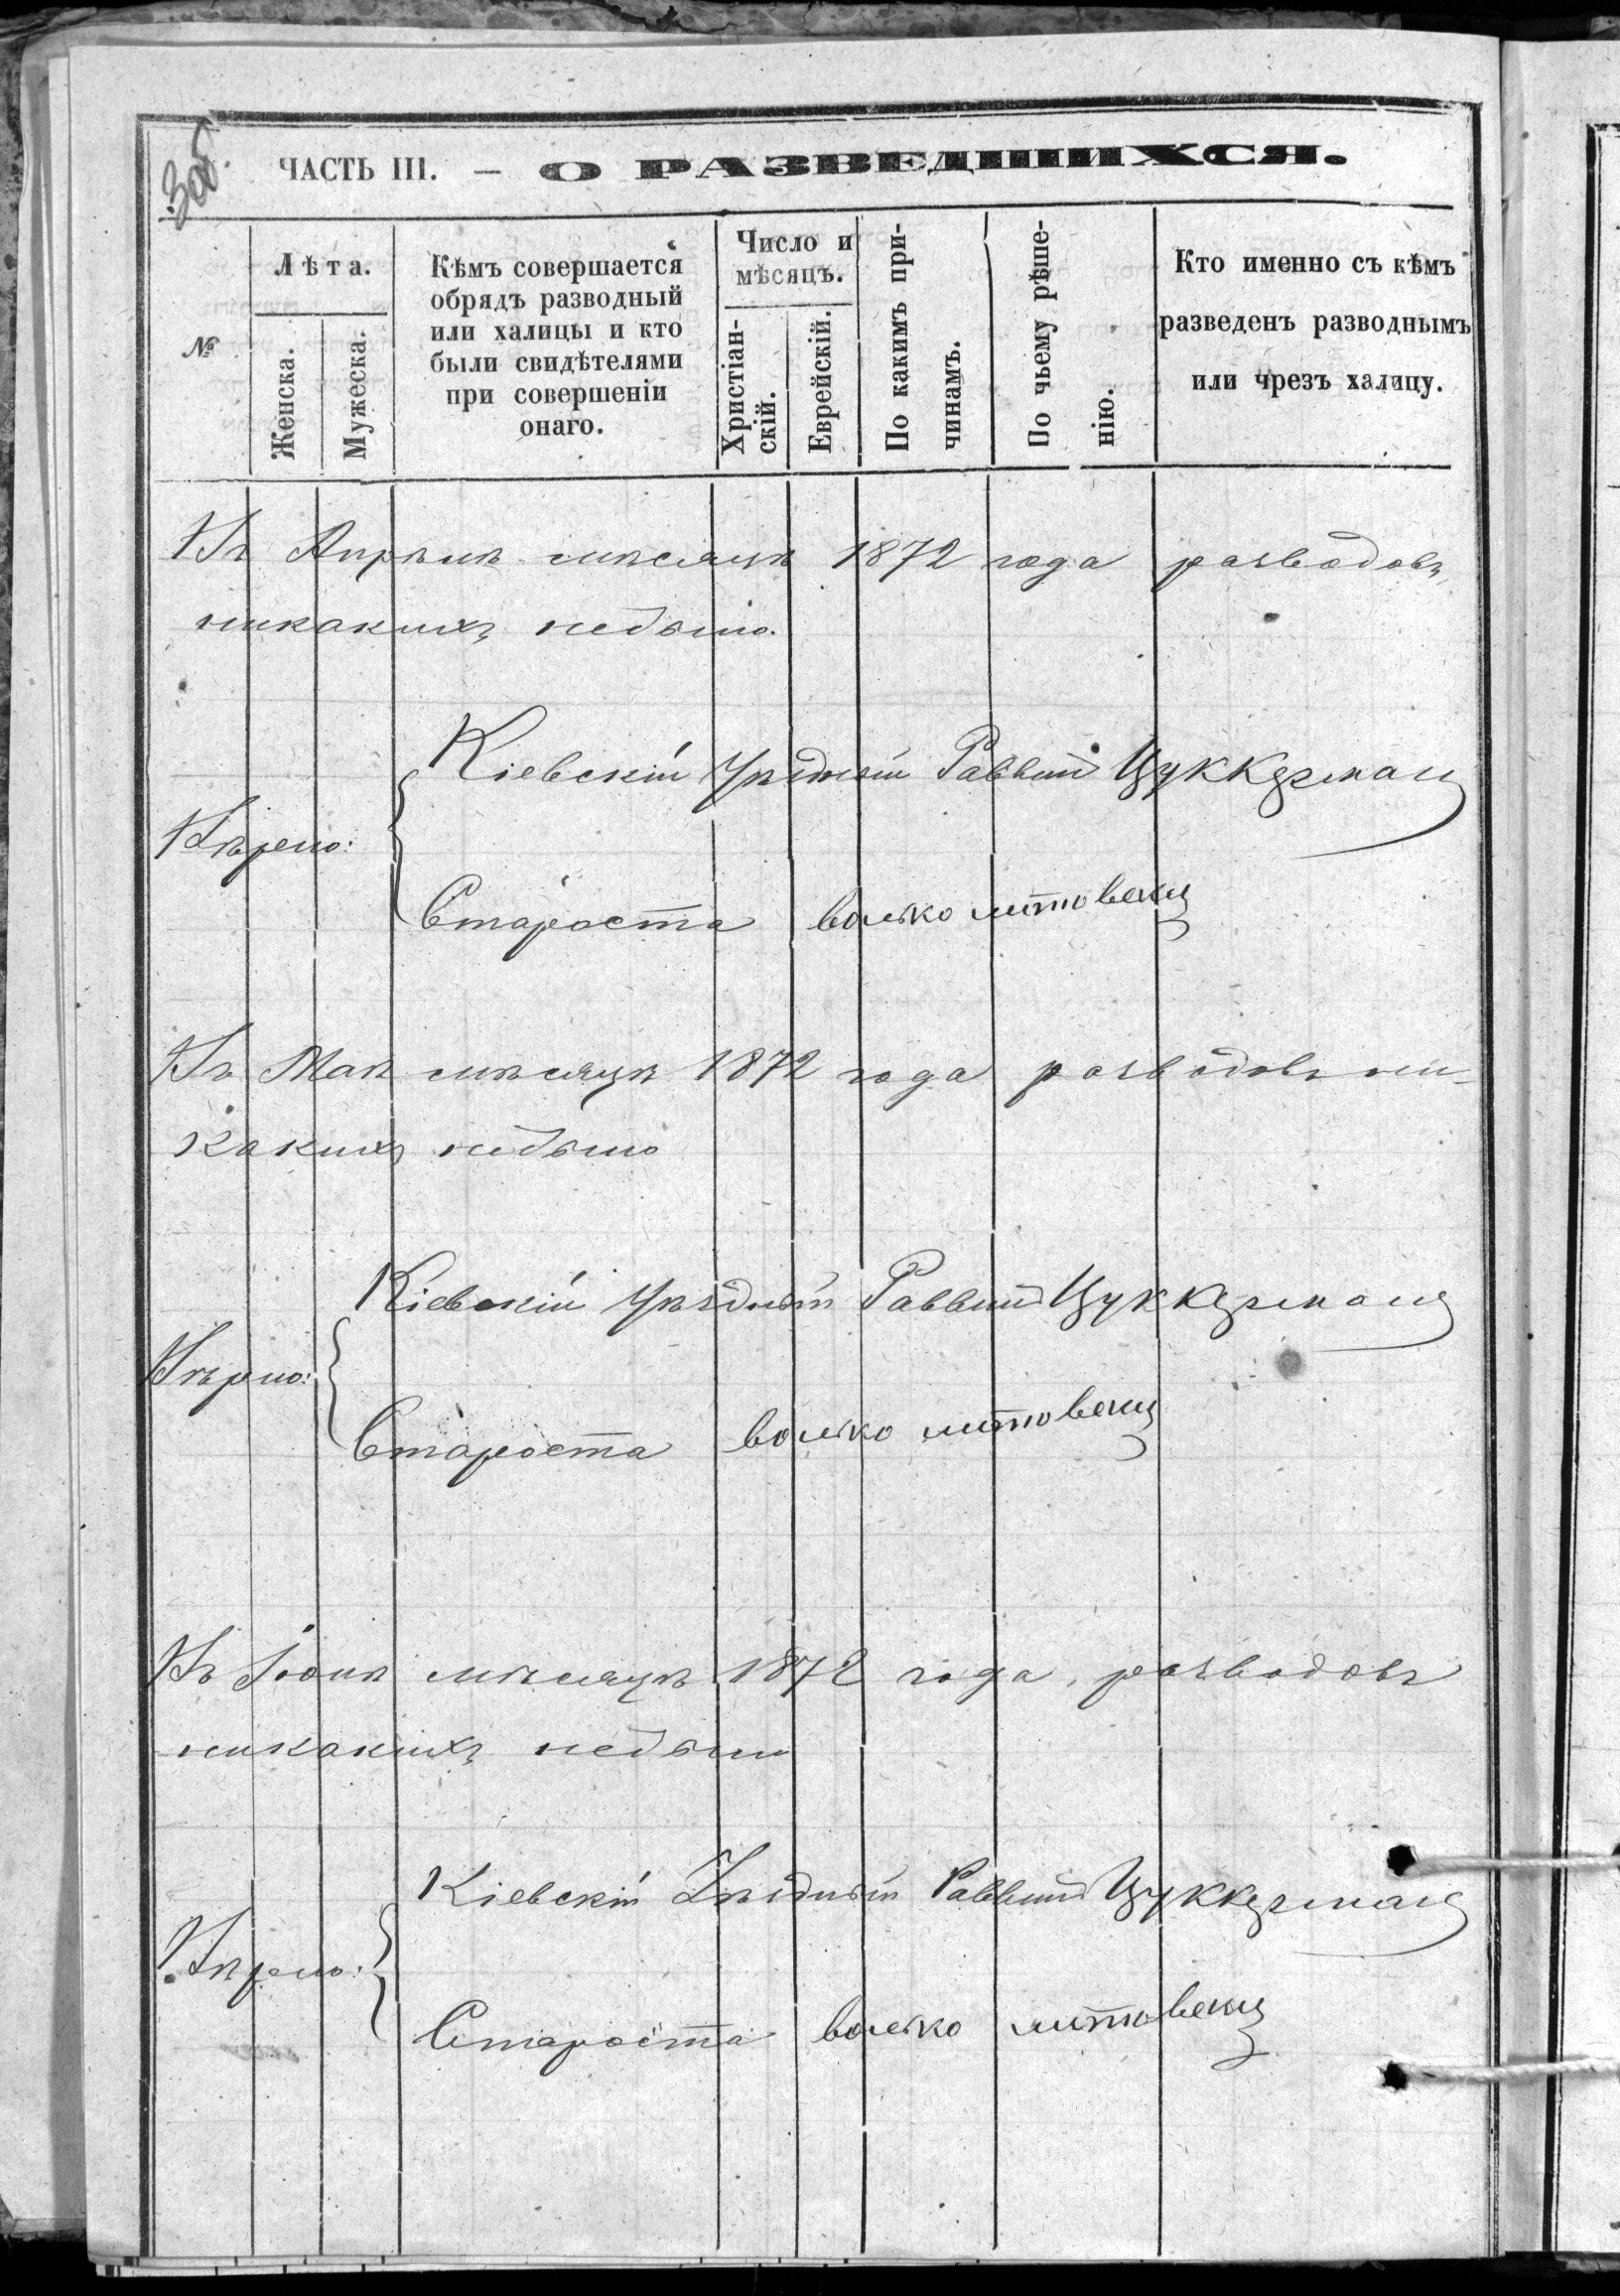 ЧАСТЬ III. — О РАЗВЕДШИХСЯ.
№
Лѣта.
Женска.
Мужеска.
Кѣмъ совершается
обрядъ разводный
или халицы и кто
были свидѣтелями
при совершеніи
онаго.
Число и
мѣсяцъ.
Христіан-
скій.
Еврейскій.
По какимъ при-
чинамъ.
По чьему рѣше-
нію.
Кто именно съ кѣмъ
разведенъ разводнымъ
или чрезъ халицу.
Въ Апрѣлѣ мѣсяцѣ 1872 года разводовъ
никакихъ небыло.
Кіевскій Уѣздный Раввинъ Цуккерманъ
Вѣрно:
Староста волько литовецкі
Въ Маѣ мѣсяцѣ 1872 года разводовъ ни-
какихъ небыло
Кіевскій Уѣздный Раввинъ Цуккерманъ
Вѣрно:
Староста волько литовецкі
Въ Іюнѣ мѣсяцѣ 1872 года разводовъ
никакихъ небыло
Кіевскій Уѣздный Раввинъ Цуккерманъ
Вѣрно:
Староста волько литовецкі